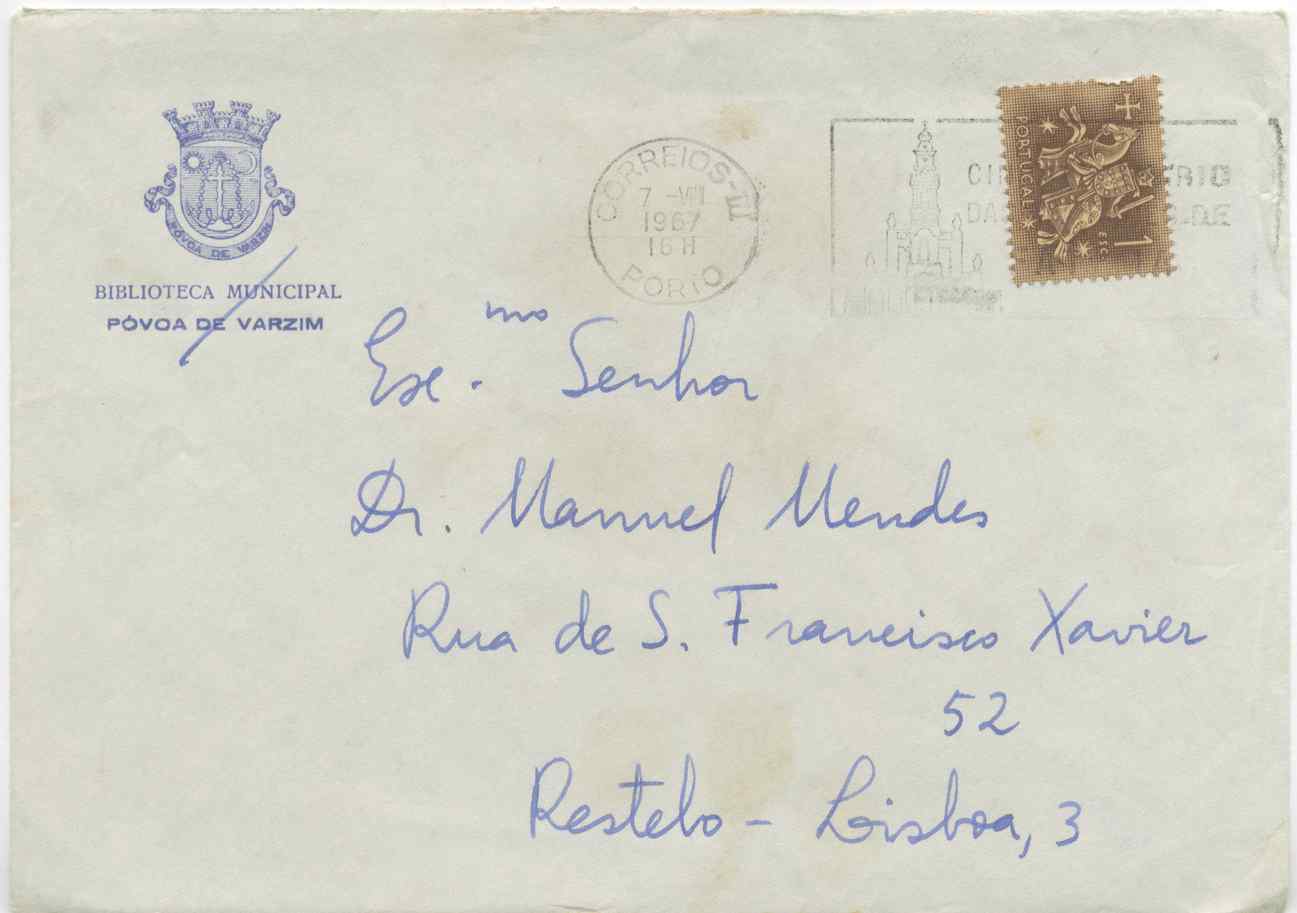 PÓVOA DE VARZIM
BIBLIOTECA MUNICIPAL
PÓVOA DE VARZIM
CORREIOS-III
7 -VIII
1967
16 H
PORTO
PORTUGAL
1 ESC
Exc.mo Senhor
Dr. Manuel Mendes
Rua de S. Francisco Xavier
52
Restelo - Lisboa, 3